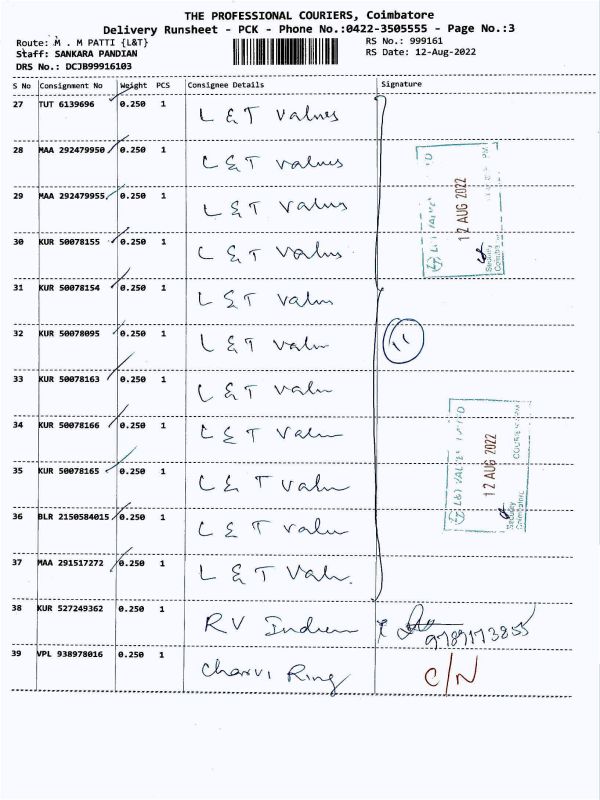 THE PROFESSIONAL COURIERS, Coimbatore
Delivery Runsheet - PCK - Phone No.:0422-3505555 - Page No.:3
Route: M . M PATTI {L&T} RS No.: 999161
Staff: SANKARA PANDIAN RS Date: 12-Aug-2022
DRS No.: DCJB99916103
S No Consignment No Weight PCS Consignee Details Signature
27 TUT 6139696 0.250 1 L & T Valves
28 MAA 292479950 0.250 1 L & T Valves
29 MAA 292479955 0.250 1 L & T Valves
30 KUR 50078155 0.250 1 L & T Valves
12 AUG 2022
Security
31 KUR 50078154 0.250 1 L & T
32 KUR 50078095 0.250 1 L & T
11
33 KUR 50078163 0.250 1 L & T
34 KUR 50078166 0.250 1 L & T
35 KUR 50078165 0.250 1 L & T
L&T VALVES LIMITED
12 AUG 2022
Security
Coimbatore
36 BLR 2150584015 0.250 1 L & T
37 MAA 291517272 0.250 1 L & T
38 KUR 527249362 0.250 1 RV 9789173855
39 VPL 938978016 0.250 1 Charvi Ring C/N